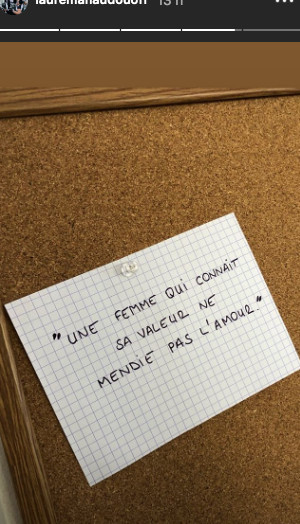 13 h
" UNE FEMME QUI CONNAIT
SA VALEUR NE
MENDIE PAS L'AMOUR "